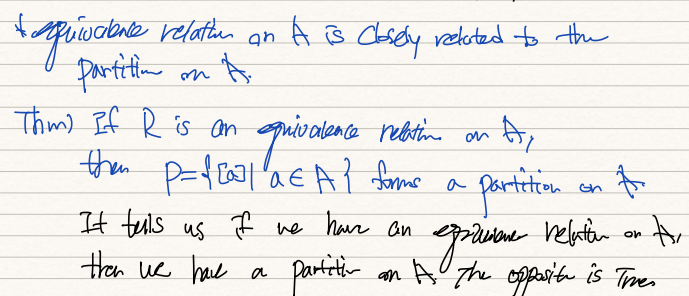 * equivalence relation on A is closely related to the
partition on A.
Thm) If R is an equivalence relation on A,
then P={[a]| a ∈ A} forms a partition on A.
It tells us if we have an equivalence relation on A,
then we have a partition on A. The opposite is True.